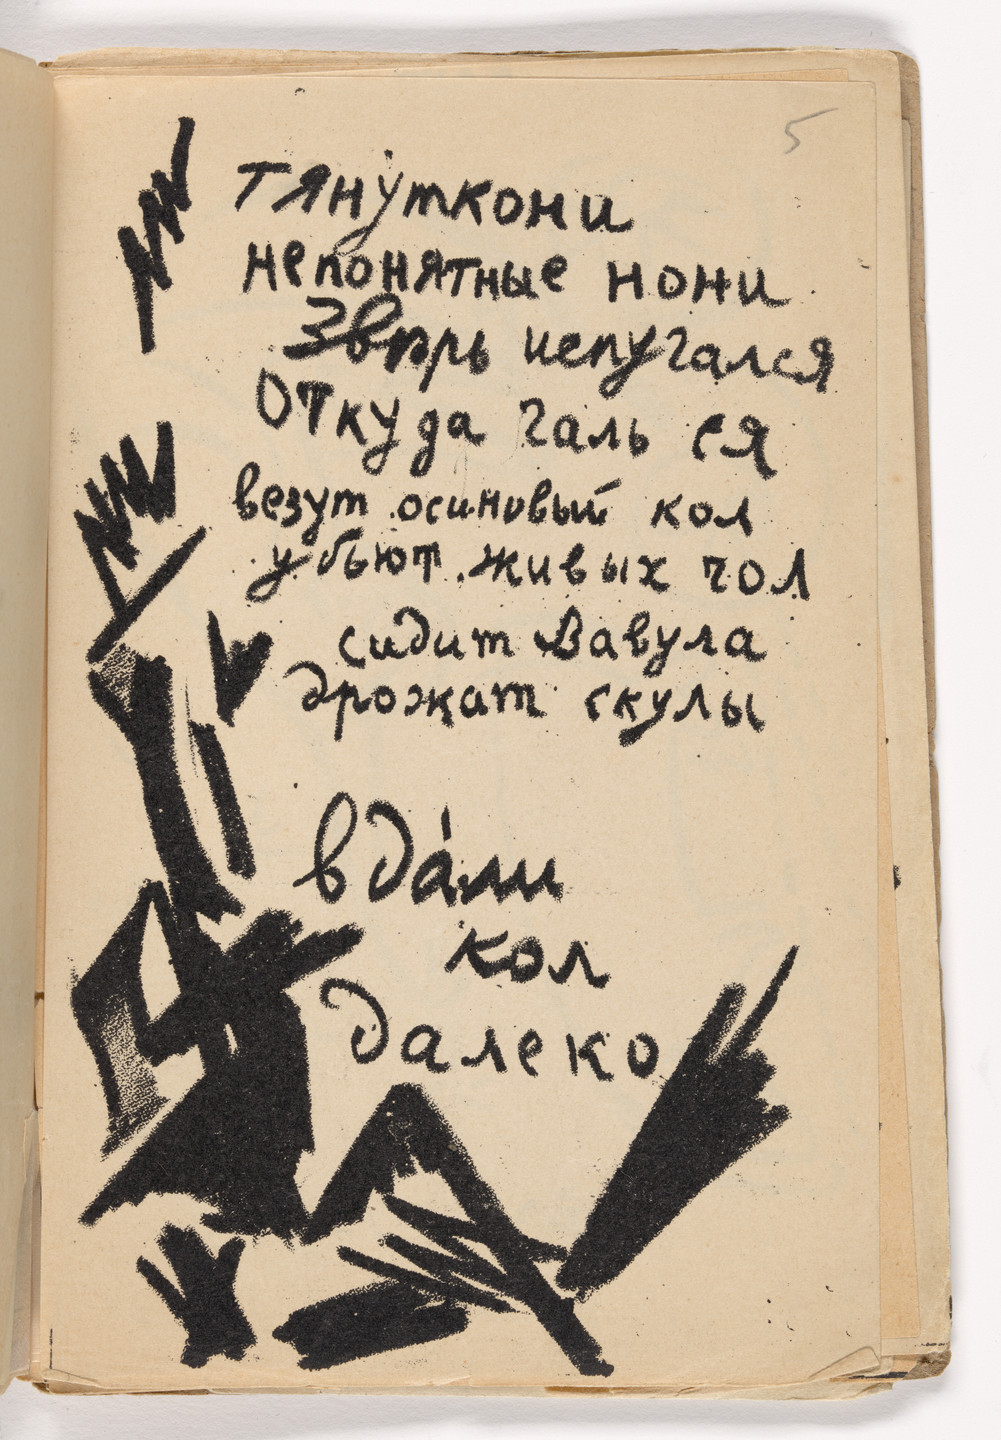 5
тянут кони
непонятные нони
Звѣрь испугался
Откуда галь ся
везут осиновый кол
убьют живых чол
сидит Вавула
дрожат скулы
вда́ли
кол
далеко